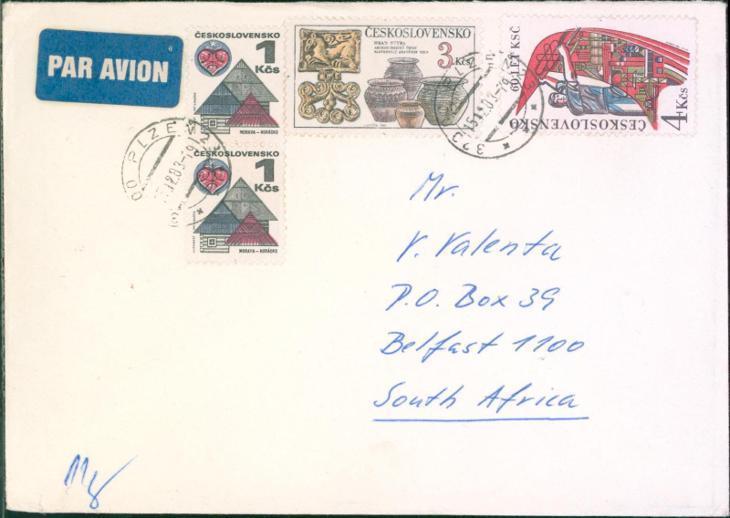 PAR AVION
ČESKOSLOVENSKO
1
Kčs
MORAVA—HORÁCKO
ČESKOSLOVENSKO
1
Kčs
MORAVA—HORÁCKO
ČESKOSLOVENSKO
3
Kčs
60 LET KSČ
ČESKOSLOVENSKO
4 Kčs
PLZEŇ
Mr.
V. Valenta
P.O. Box 39
Belfast 1100
South Africa